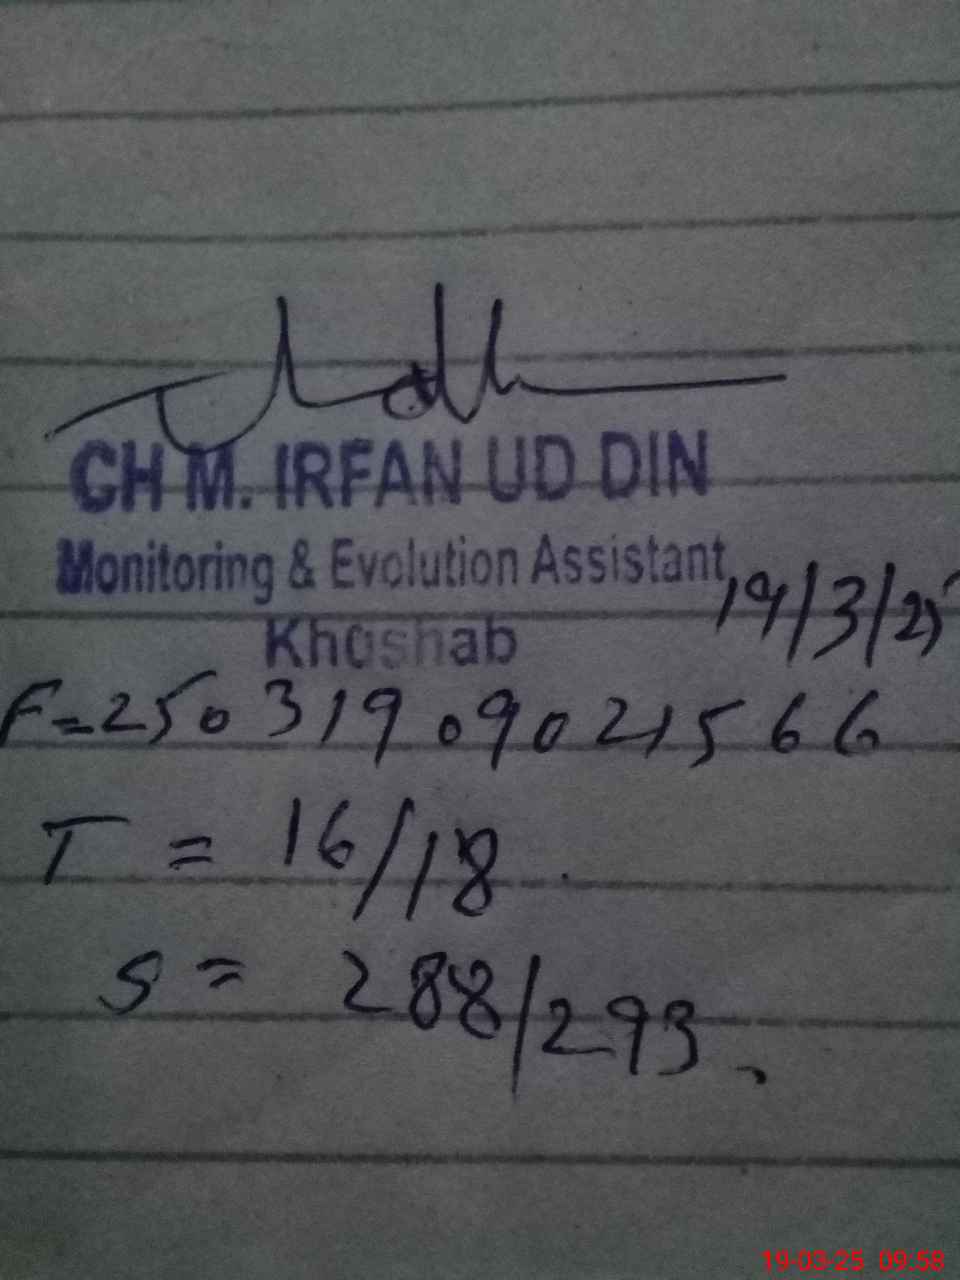 CH M. IRFAN UD DIN
Monitoring & Evolution Assistant
Khoshab
19/3/25
F=25031909021566
T = 16/18
S = 288/293
19-03-25 09:58